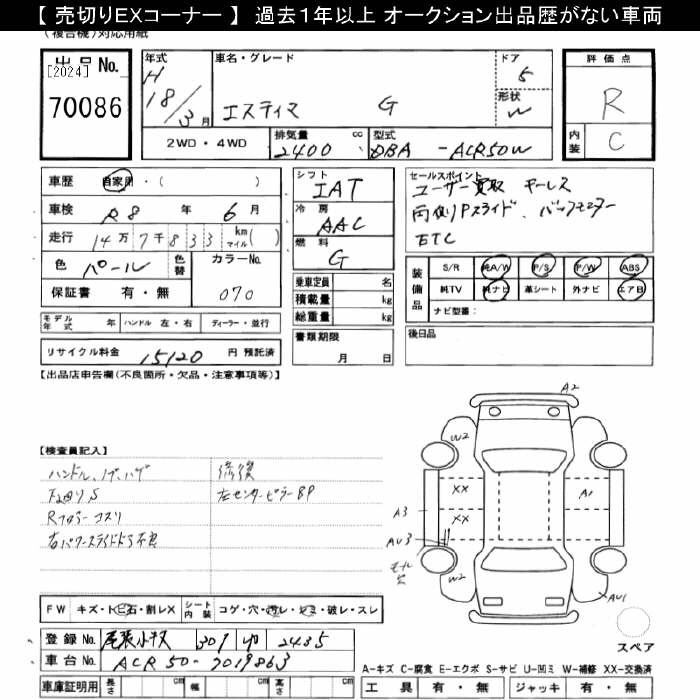 【 売切りEXコーナー 】 過去1年以上 オークション出品歴がない車両
(複合機)対応用紙
出品No.
[2024]
70086
年式
H
18/3月
車名・グレード
エスティマ G
ドア
5
形状
W
評価点
R
内装
C
2WD・4WD
排気量 cc
2400
型式
DBA -ACR50W
車歴 自家用・( )
車検 R8 年 6月
走行 14万7千833 km マイル( )
色 パール 色替
カラーNo.
070
保証書 有・無
シフト
IAT
冷房
AAC
燃料
G
乗車定員 名
積載量 kg
総重量 kg
セールスポイント
ユーザー買取 キーレス
両側Pスライド、バックモニター
ETC
装備品
S/R 純A/W P/S P/W ABS
純TV 純ナビ 革シート 外ナビ エアB
ナビ型番:
モデル年式 年 ハンドル 左・右 ディーラー・並行
リサイクル料金 15120 円 預託済
書類期限
月 日
後日品
【出品店申告欄(不良箇所・欠品・注意事項等)】
【検査員記入】
修復
左センターピラーBP
右パワースライドドア不良
A2
W2
XX
XX
A1
A3
AU3
W2
AU1
スペア
FW キズ・トビ石・割レX シート内装 コゲ・穴・汚レ・シミ・破レ・スレ
登録No. 尾張小牧 301 ゆ 2435
車台No. ACR50-7019863
車庫証明用 長さ cm 幅 cm 高さ cm
A-キズ C-腐食 E-エクボ S-サビ U-凹ミ W-補修 XX-交換済
工具 有・無 ジャッキ 有・無